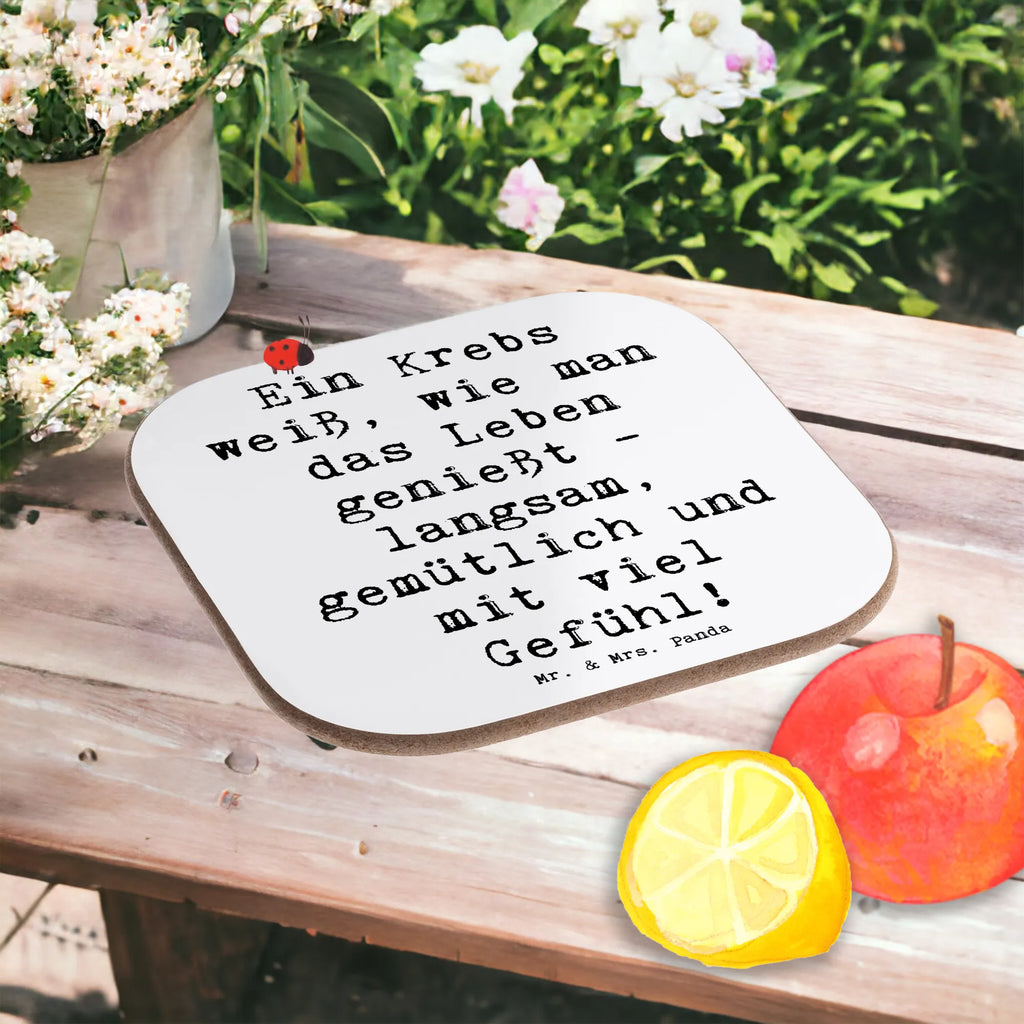 Ein Krebs
weiß, wie man
das Leben
genießt -
langsam,
gemütlich und
mit viel
Gefühl!
Mr. & Mrs. Panda